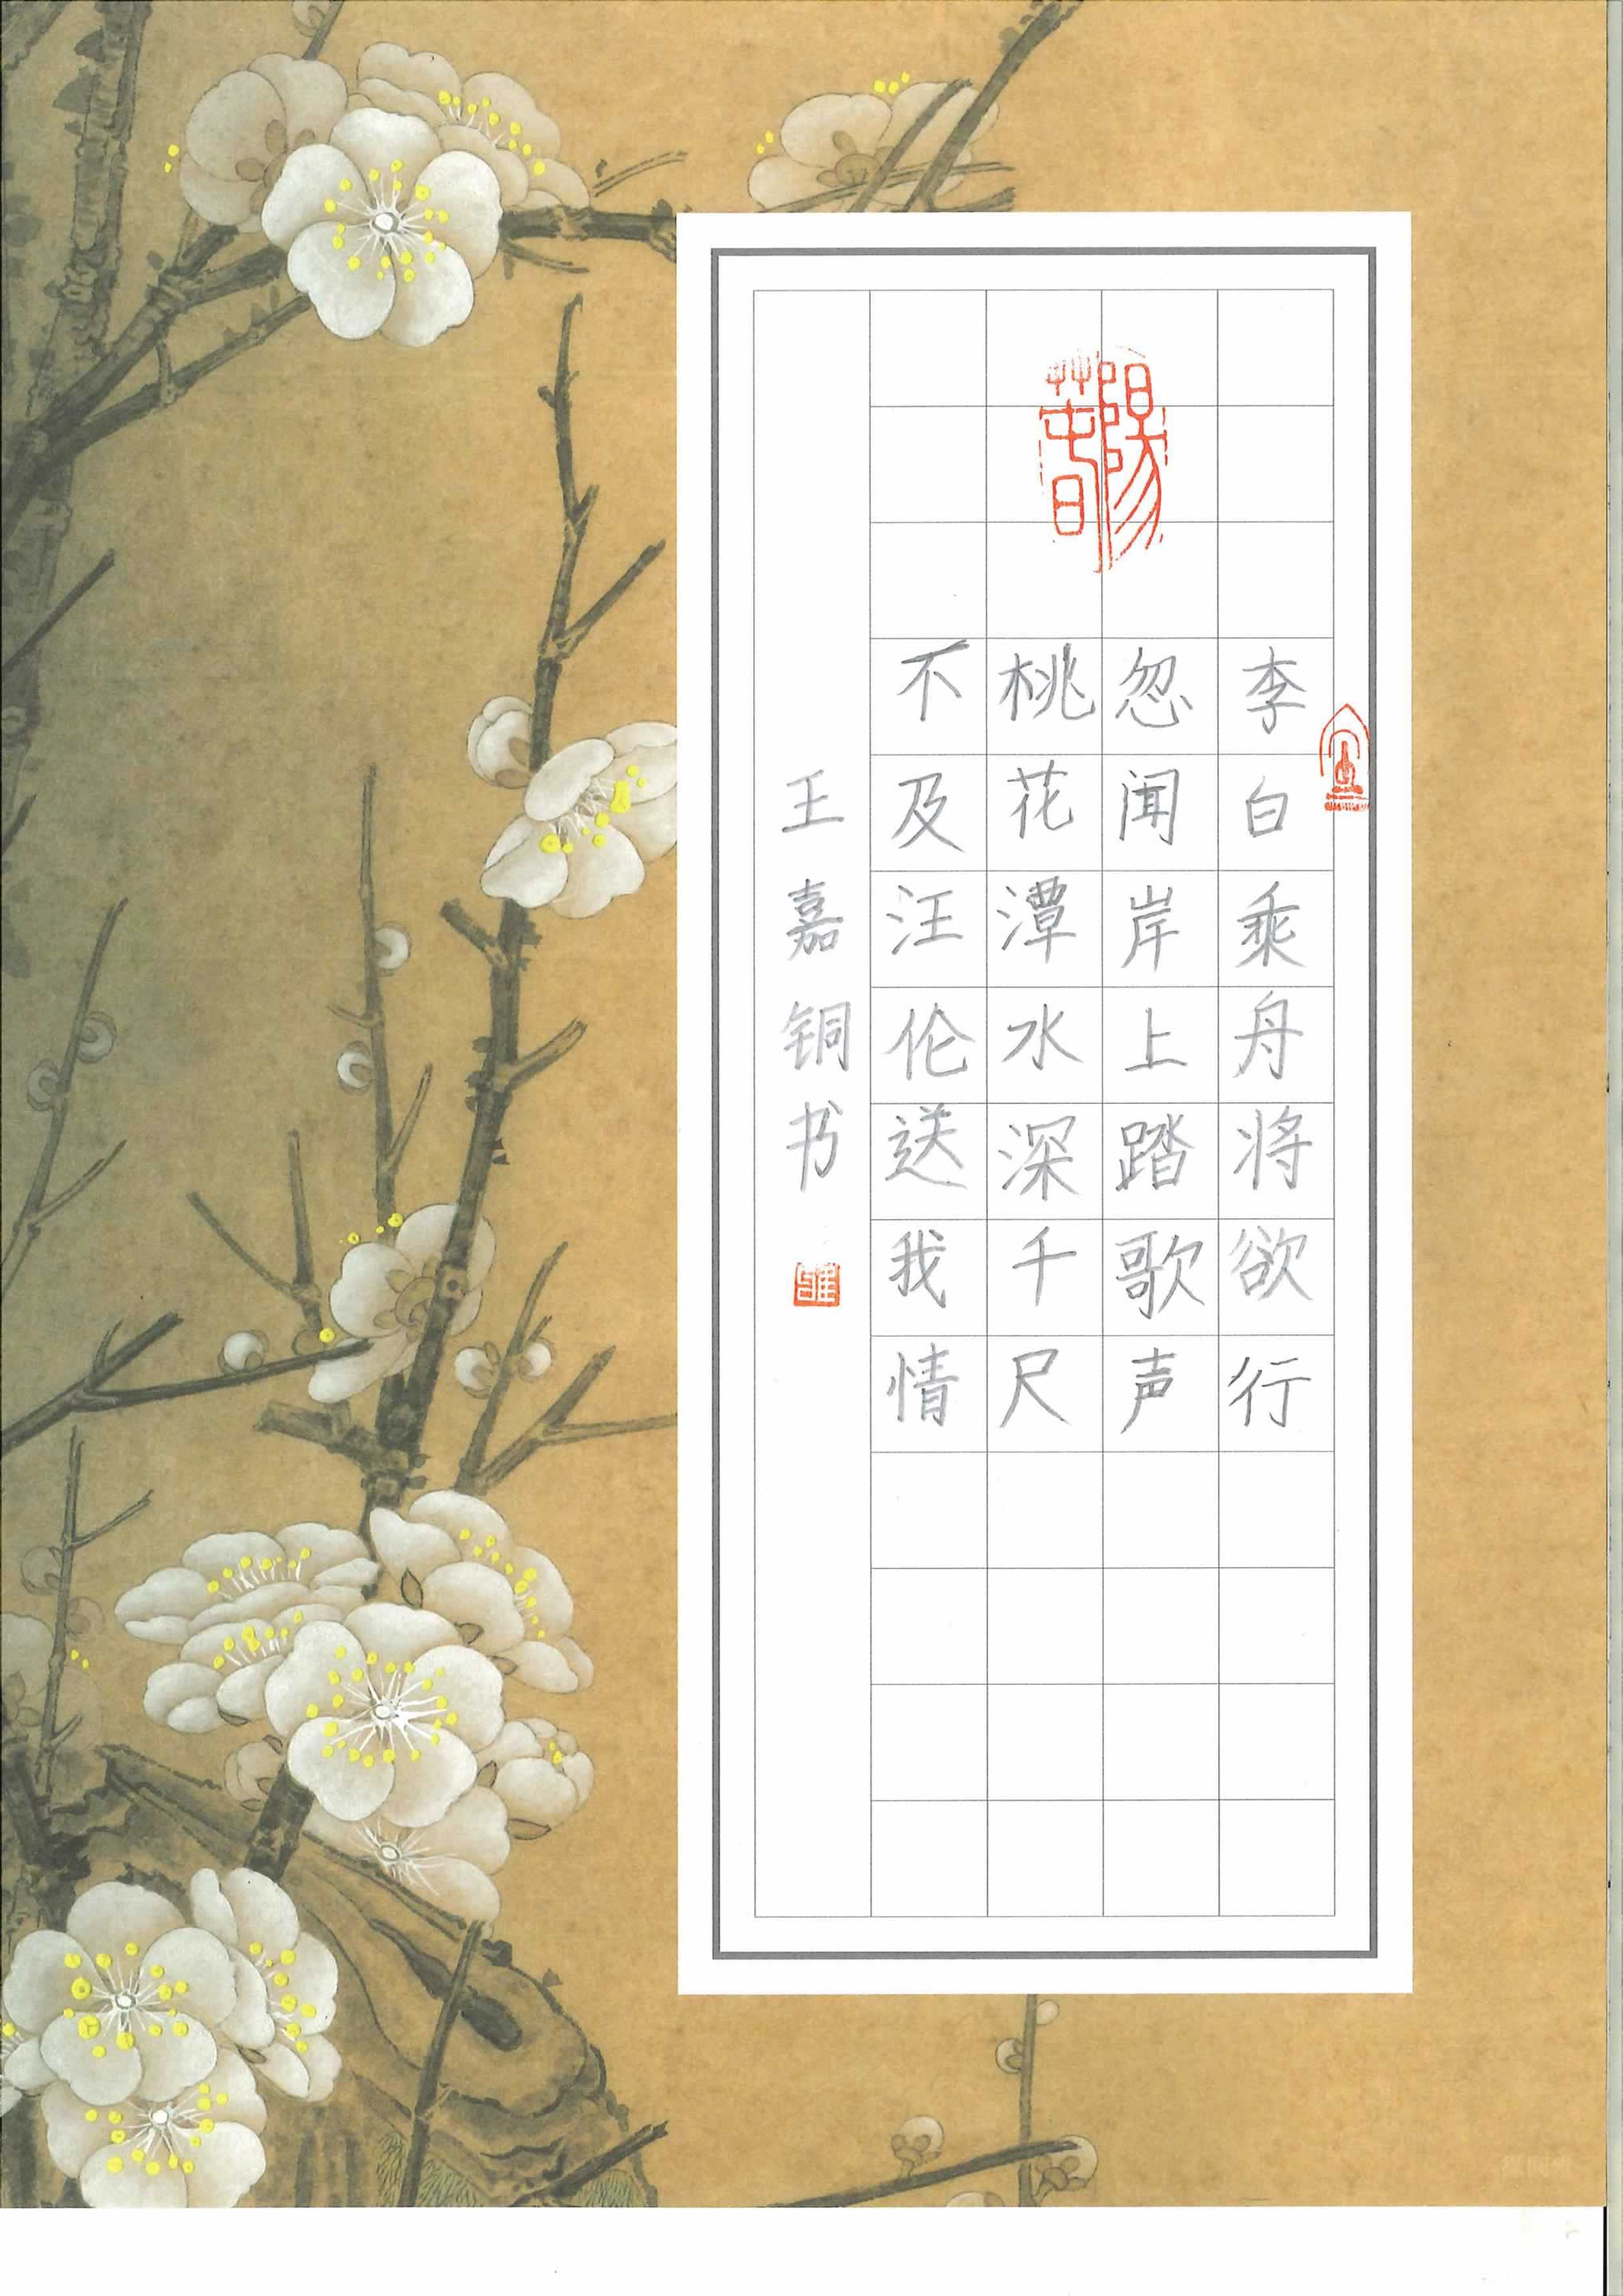 李白乘舟将欲行
忽闻岸上踏歌声
桃花潭水深千尺
不及汪伦送我情
王嘉铜书
陽春